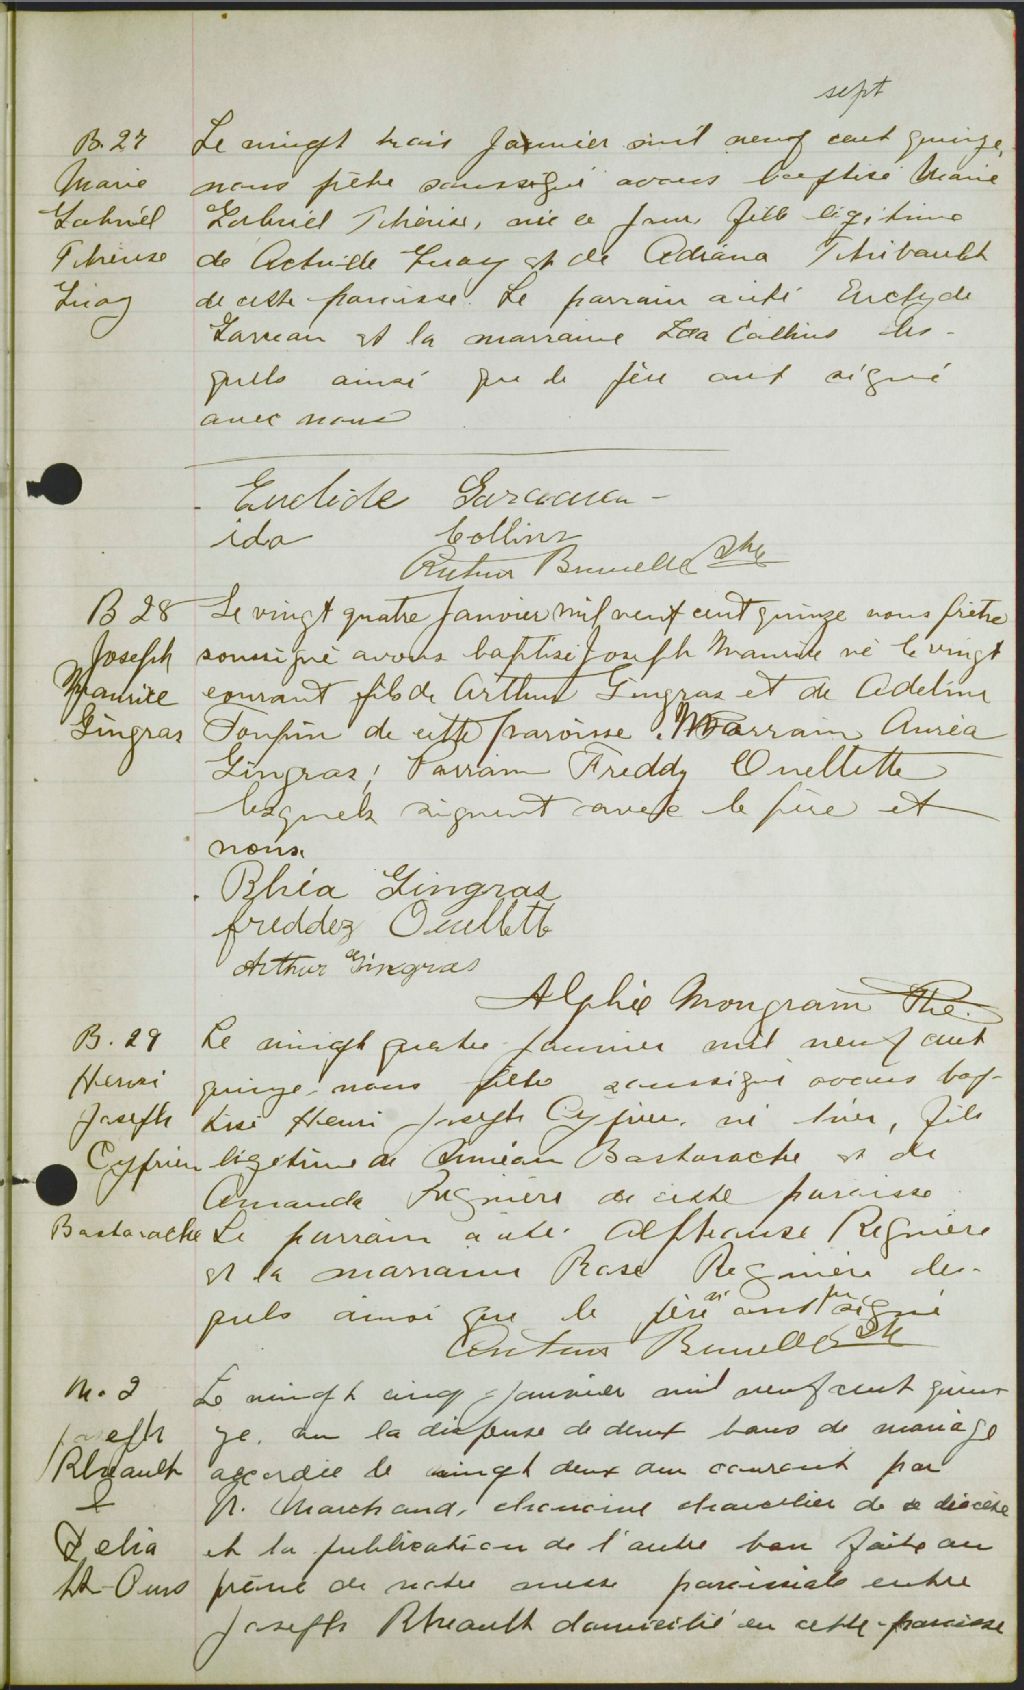 sept
B. 27
Marie
Gabriél
Thérèse
Guay
Le vingt trois janvier mil neuf cent quinze,
nous prêtre soussigné avons baptisé Marie
Gabriél Thérèse, née ce jour fille légitime
de Guay et de Adriana Thibault
de cette paroisse. Le parrain a été Euclyde
Garneau et la marraine Ida Collins les-
quels ainsi que le père ont signé
avec nous
Euclide
ida Collins
Arthur Brunelle Ptre
B 28
Joseph
Maurice
Gingras
Le vingt quatre Janvier mil neuf cent quinze nous prêtre
soussigné avons baptisé Joseph Maurice né le vingt
courant fils de Arthur Gingras et de Adeline
de cette paroisse. Marraine Auréa
Gingras; Parrain Freddy Ouellette
lesquels signent avec le père et
nous.
Rhéa Gingras
freddez Ouellette
Arthur Gingras
Alphée Mongrain Ptre.
B. 29
Henri
Joseph
Cyprien
Bastarache
Le vingt quatre janvier mil neuf cent
quinze, nous prêtre soussigné avons bap-
tisé Henri Joseph Cyprien, né hier, fils
légitime de Siméon Bastarache et de
Amanda Regnière de cette paroisse
Le parrain a été Alphonse Regnière
et la marraine Rose Regnière les-
quels ainsi que le père ont signé
Arthur Brunelle Ptre
M. 2
Joseph
Rheault
&
Delia
St-Ours
Le vingt cinq janvier mil neuf cent quin-
ze, vu la dispense de deux bans de mariage
accordée le vingt deux du courant par
Marchand, chanoine chancelier de ce diocèse
et la publication de l'autre ban faite au
prône de notre messe paroissiale entre
Joseph Rheault domicilié en cette paroisse